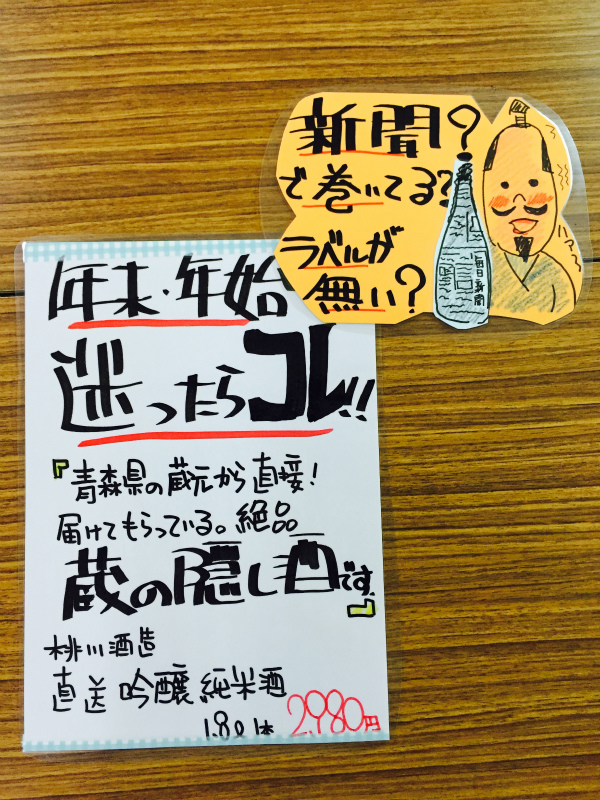 新聞?
で巻いてる?
ラベルが
無い?
毎日新聞
ハアハアー
年末・年始
迷ったらコレ!!
『青森県の蔵元から直接!
届けてもらっている。絶品
蔵の隠し酒です。』
桃川酒造
直送 吟醸 純米酒
1.8ℓ 1本 2,980円